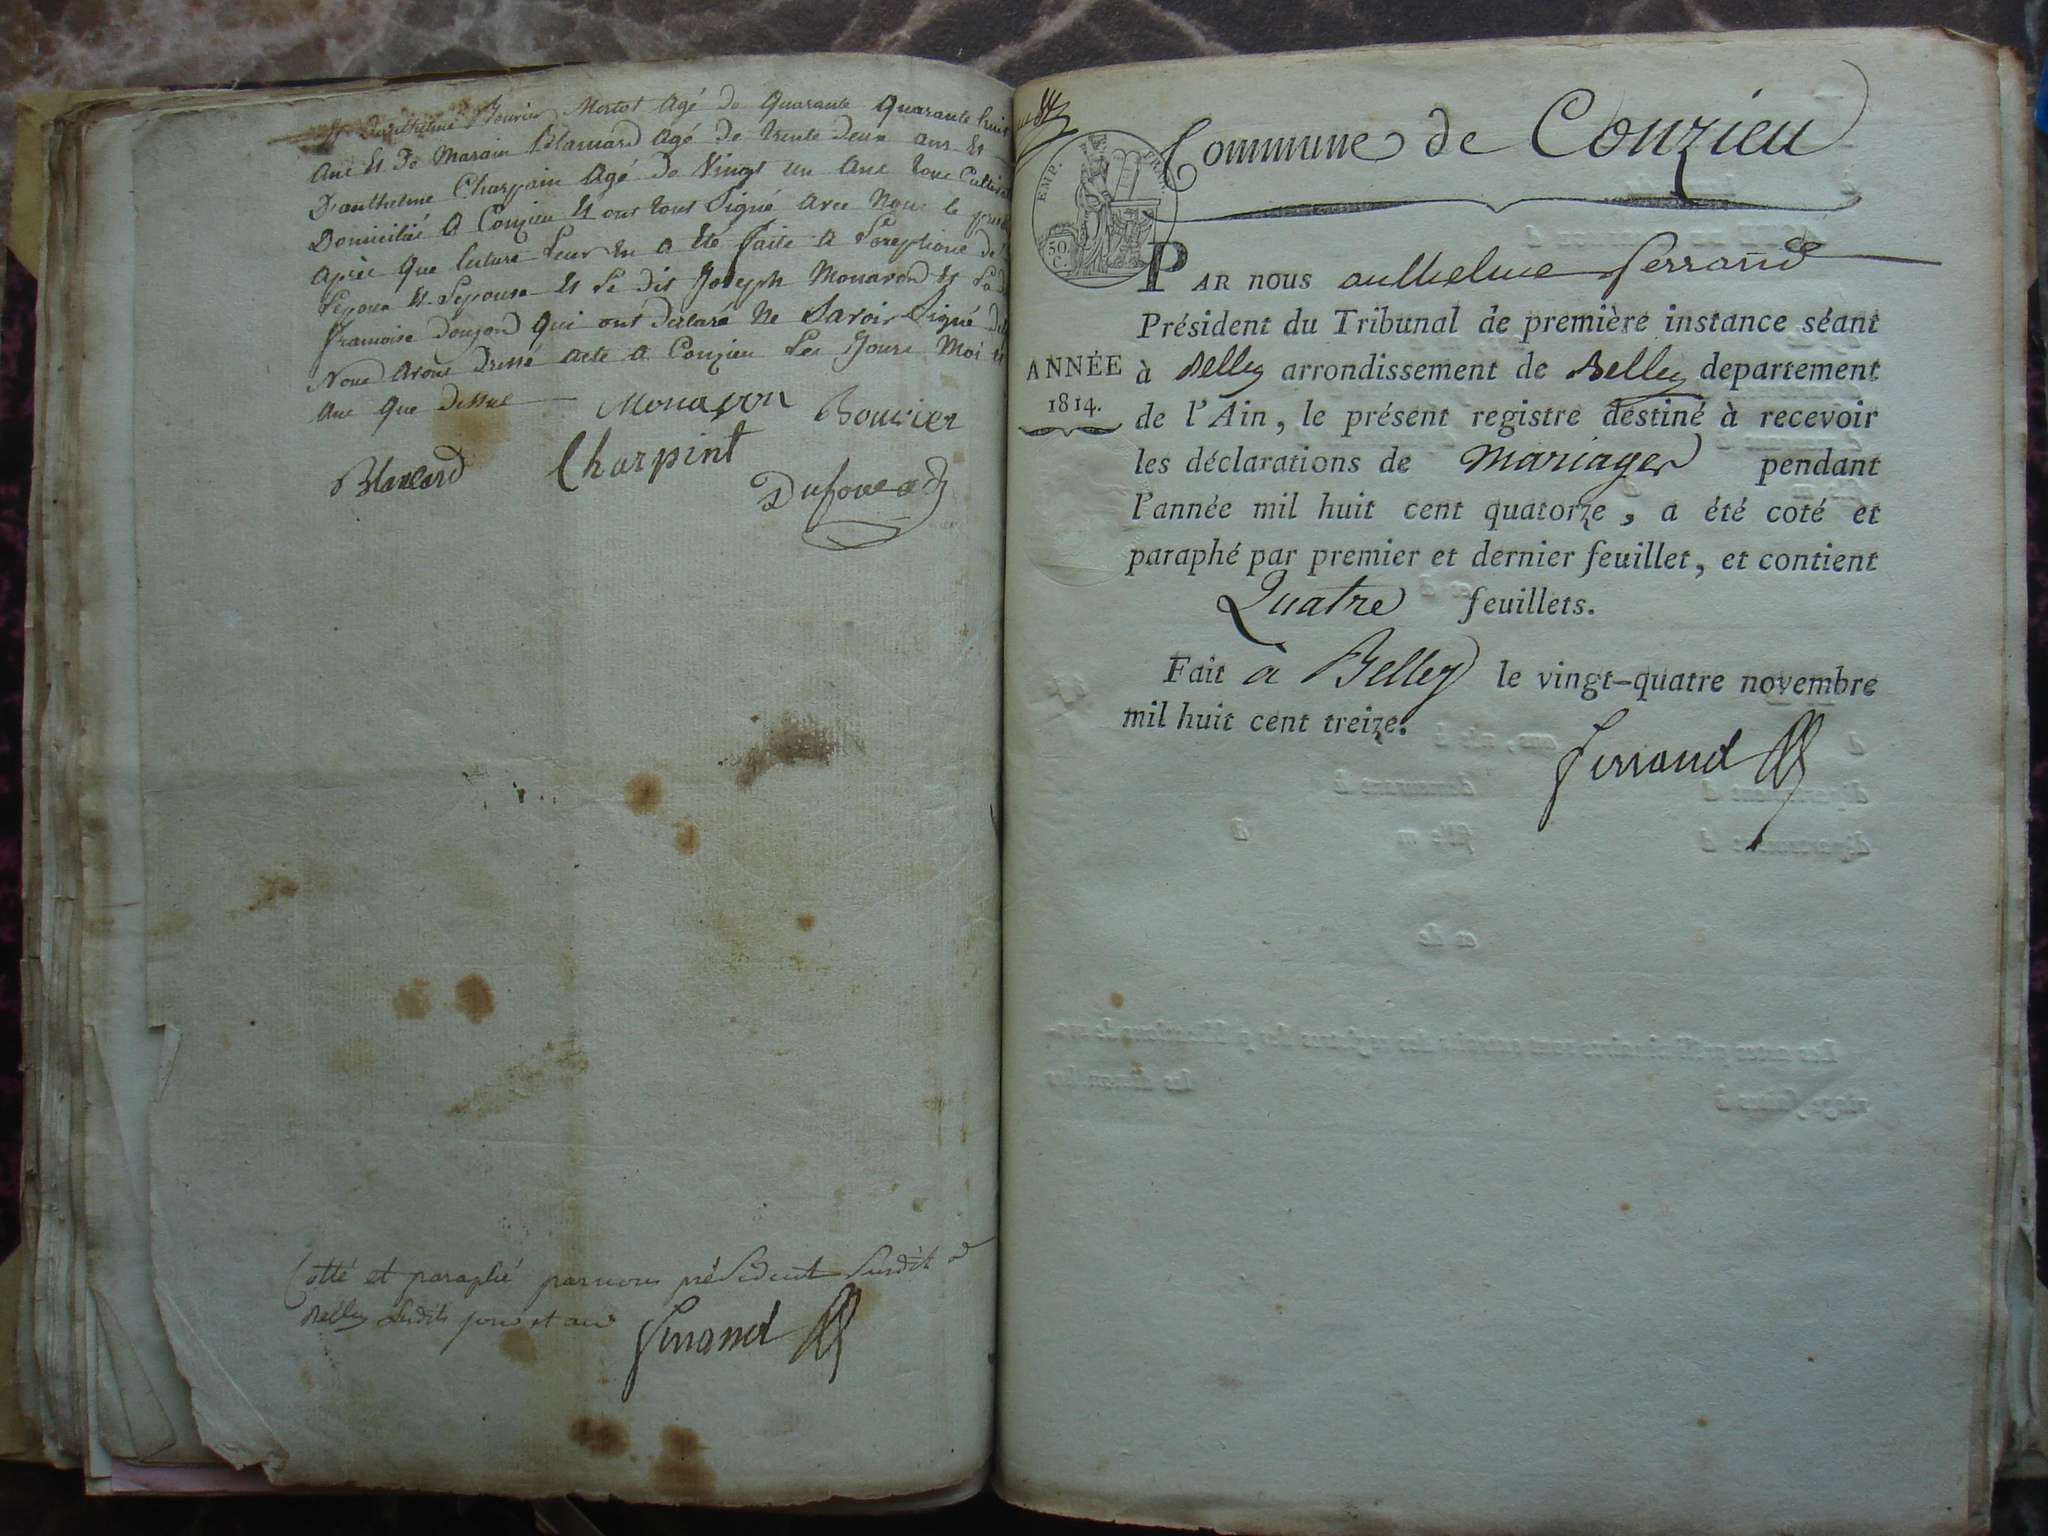 Danthelme Bouvier Mortot Agé de Quarante Quarante huit
Ans Et De Marain Blancard Agé de trente deux ans Et
Danthelme Charpain Agé de Vingt un Ans tous Cultiva
Domiciliés A Conzieu Et ont tous Signé Avec Nous le
Après Que lecture leur En a Eté faite A L'exeptione de
L'epoux Et L'epouse Et Le dit Joseph Monavon Et La
francoise Qui ont déclaré Ne Savoir Signé
Nous Avons Dressé Acte A Conzieu Les Jours Moi Et
Ans Que Dessus
Monavon Bouvier
Blancard Charpint
Dufour
Cotté et paraphé par nous président Susdit a
Belley Susdits jour et an
Ferrand
Commune de Conzieu
EMP. FRAN.
50 C.
PAR NOUS anthelme ferrand
Président du Tribunal de première instance séant
ANNÉE
1814.
à Belley arrondissement de Belley departement
de l'Ain, le présent registre destiné à recevoir
les déclarations de Mariages pendant
l'année mil huit cent quatorze, a été coté et
paraphé par premier et dernier feuillet, et contient
Quatre feuillets.
Fait à Belley le vingt-quatre novembre
mil huit cent treize.
ferrand